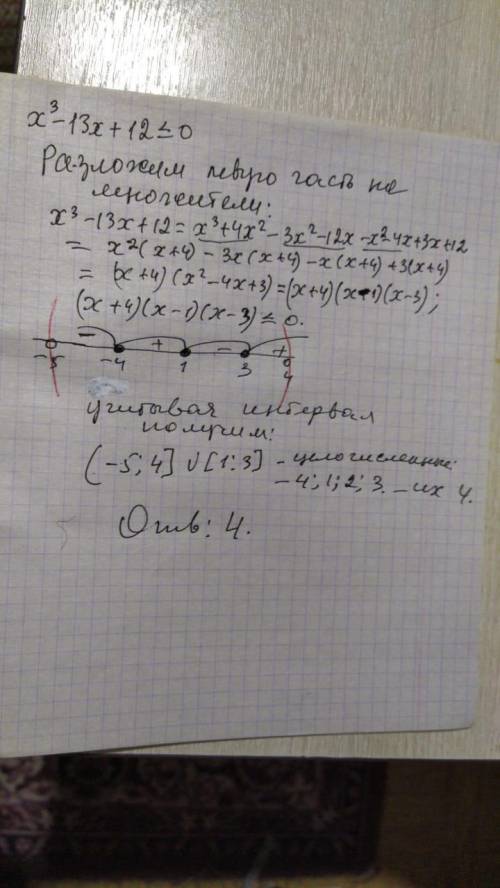 x³-13x+12≤0
Разложим левую часть на
множители:
x³-13x+12= x³+4x²-3x²-12x-x²-4x+3x+12
= x²(x+4)-3x(x+4)-x(x+4)+3(x+4)
= (x+4)(x²-4x+3)=(x+4)(x-1)(x-3);
(x+4)(x-1)(x-3)≤0.
- + - +
-5 -4 1 3 4
учитывая интервал
получим:
(-5; 4] ∪ [1; 3] - целочисленные:
-4; 1; 2; 3. - их 4.
Отв: 4.